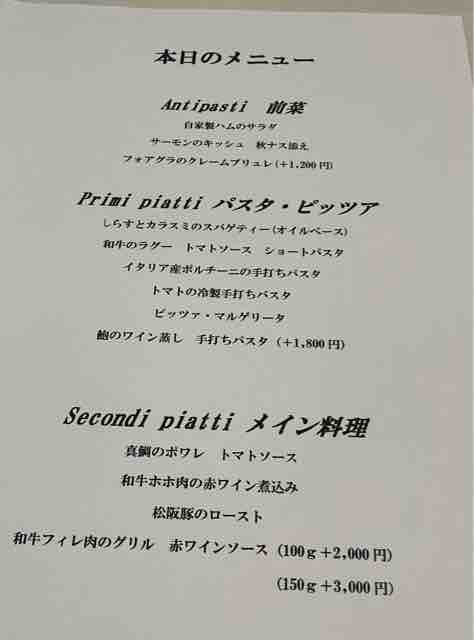 本日のメニュー
Antipasti 前菜
自家製ハムのサラダ
サーモンのキッシュ 秋ナス添え
フォアグラのクレームブリュレ(+1,200円)
Primi piatti パスタ・ピッツア
しらすとカラスミのスパゲティー(オイルベース)
和牛のラグー トマトソース ショートパスタ
イタリア産ポルチーニの手打ちパスタ
トマトの冷製手打ちパスタ
ピッツァ・マルゲリータ
鮑のワイン蒸し 手打ちパスタ (+1,800円)
Secondi piatti メイン料理
真鯛のポワレ トマトソース
和牛ホホ肉の赤ワイン煮込み
松阪豚のロースト
和牛フィレ肉のグリル 赤ワインソース (100g+2,000円)
(150g+3,000円)